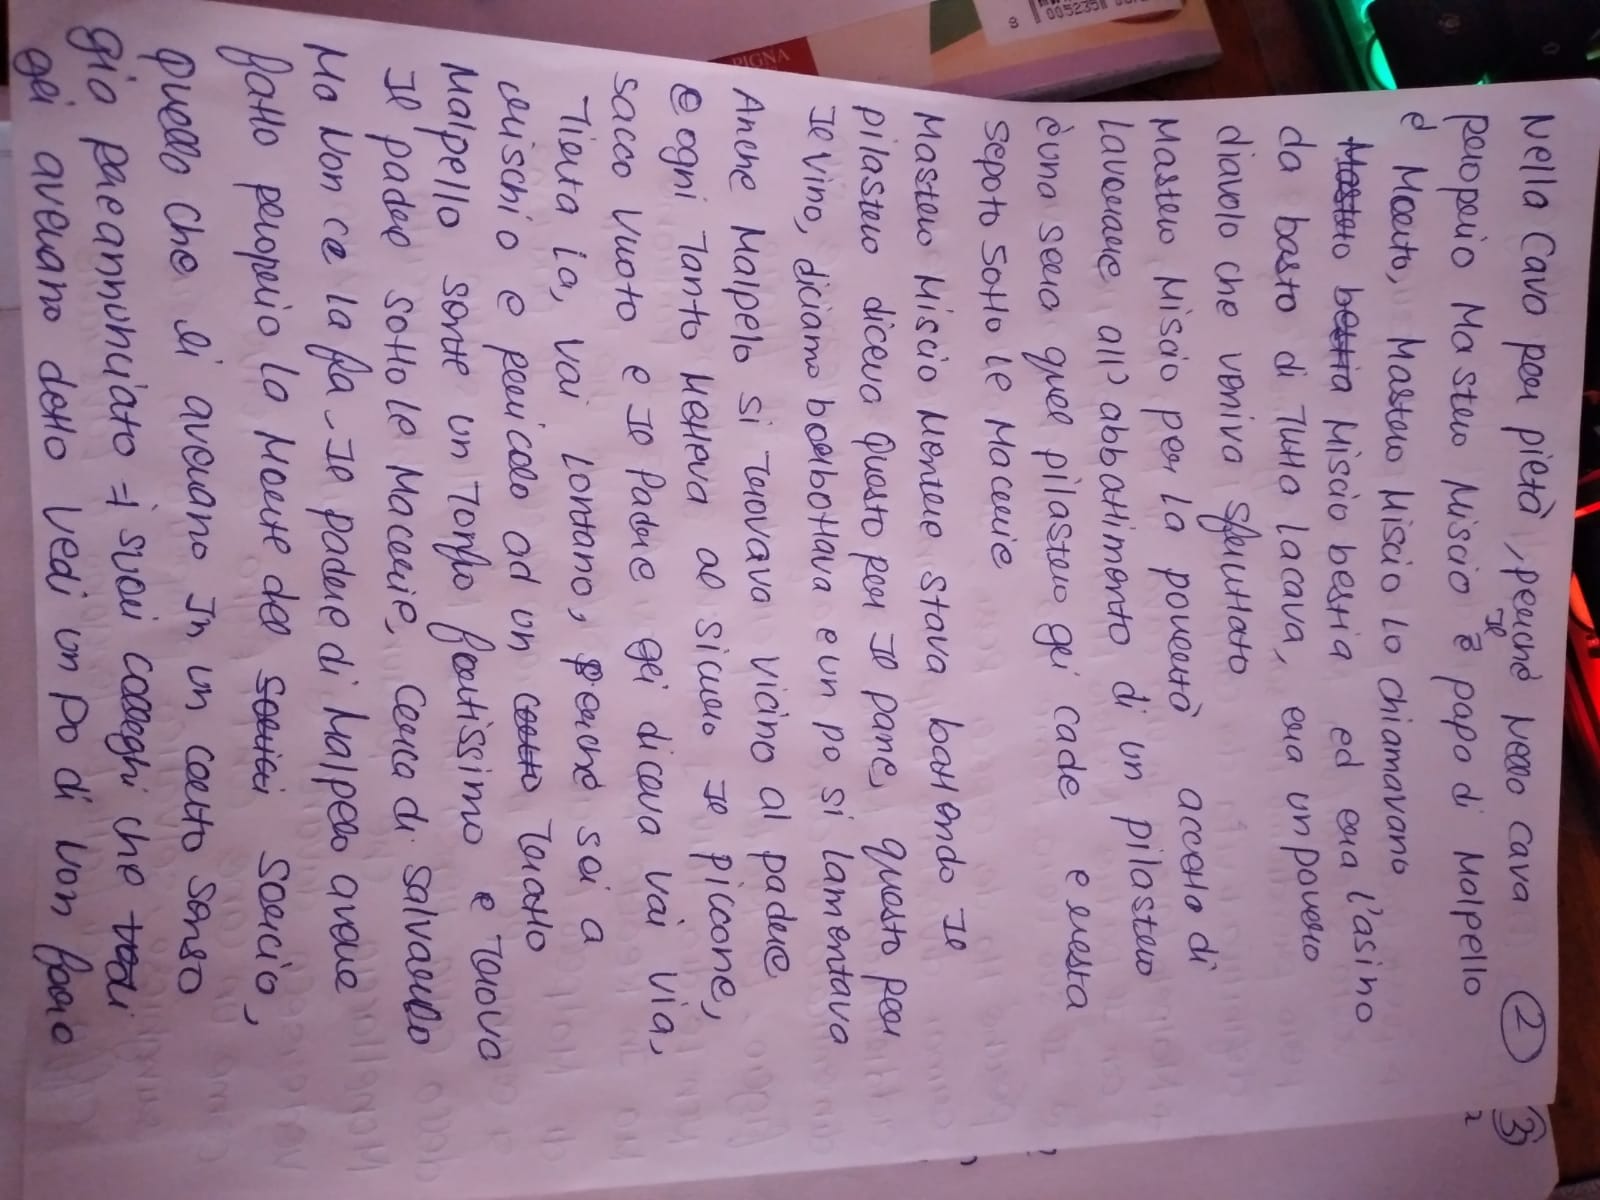 Nella Cava per pietà, perché Nella cava ②
proprio Mastro Miscio Il papa di Malpello
è Morto, Mastro Miscio lo chiamavano
Mastro bestia Miscio bestia ed era l'asino
da basto di Tutta la cava, era un povero
diavolo che veniva sfruttato
Mastro Miscio per la povertà accetta di
lavorare all'abbattimento di un pilastro
è una sera quel pilastro gli cade e resta
sepoto sotto le Macerie
Mastro Miscio Mentre stava battendo Il
pilastro diceva Questo per Il pane, questo per
Il vino, diciamo borbottava e un po si lamentava
Anche Malpelo si trovava vicino al padre
e ogni Tanto Metteva al sicuro Il piccone,
sacco vuoto e Il Padre gli diceva vai via,
Tirta la, vai lontano, perché sei a
rischio e pericolo ad un certo Tratto
Malpello sente un Tonfo fortissimo e Trova
Il padre sotto le Macerie, cerca di salvarlo
Ma Non ce la fa. Il padre di Malpelo aveve
fatto proprio la Morte del sorici sorcio,
Quello che li avevano In un certo senso
gia preannunciato i suoi colleghi che vedi
gli avevano detto vedi un po di Non
③